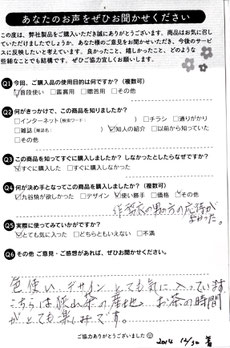 あなたのお声をぜひお聞かせください
この度は、弊社製品をご購入いただき誠にありがとうございます。商品はお気に召し
ていただけましたでしょうか。あなた様のご意見をお聞かせいただき、今後のサービ
スに反映したいと考えています。良かったこと、嬉しかったこと、どのような
些細なことでも結構です。ぜひご協力宜しくお願いします。
Q1 今回、ご購入品の使用目的は何ですか？（複数可）
☑普段使い □鑑賞用 □贈答用 □その他
Q2 何がきっかけで、この商品を知りましたか？
□インターネット（検索ワード ） □チラシ □通りがかり
□雑誌（雑誌名 ） ☑知人の紹介 □以前から知っていた
□その他
Q3 この商品を知ってすぐに購入しましたか？ しなかったとしたらなぜですか？
☑すぐに購入した □すぐに購入しなかった
Q4 何が決め手となってこの商品を購入しましたか？（複数可）
☑九谷焼が欲しかった □デザイン ☑使い勝手 □価格 ☑その他
Q5 実際に使ってみていかがですか？
☑とても気に入った □どちらともいえない □不満
Q6 その他ご意見・ご感想があれば、ぜひお聞かせください
色使い、デザイン とても気に入っています
こちらは 茶の産地。お茶の時間
がとても楽しみです。
ご協力ありがとうございました
2014